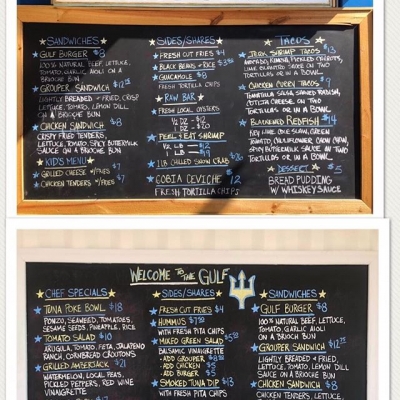 SANDWICHES
GULF BURGER $8
100% NATURAL BEEF, LETTUCE,
TOMATO, GARLIC AIOLI ON A
BRIOCHE BUN
GROUPER SANDWICH $12.25
LIGHTLY BREADED & FRIED, CRISP
LETTUCE TOMATO, LEMON DILL
ON A BRIOCHE BUN
CHICKEN SANDWICH $8
CRISPY FRIED TENDERS,
LETTUCE, TOMATO, SPICY BUTTERMILK
SAUCE ON A BRIOCHE BUN
KID'S MENU
GRILLED CHEESE W/FRIES $7
CHICKEN TENDERS W/FRIES $7
SIDES/SHARES
FRESH CUT FRIES $4
BLACK BEANS & RICE $3.50
GUACAHOLE $8
FRESH TORTILLA CHIPS
RAW BAR
FRESH LOCAL OYSTERS
1/2 DZ - $12
DZ - $20
PEEL & EAT SHRIMP
1/2 LB - $12
1 LB
1 LB CHILLED SNOW CRAB
COBIA CEVICHE 12
FRESH TORTILLA CHIPS
TACOS
JERK SHRIMP TACOS $13
AVOCADO, KIMCHI, PICKLED CARROTS,
LIME SAUCE ON TWO
TORTILLAS OR IN A BOWL
CHICKEN CURRY TACOS $9
TOMATILLA SALSA, SHAVED RADISH,
COTIJA CHEESE, ON TWO
TORTILLAS OR IN A BOWL
BLACKENED REDFISH $14
KEY LIME SLAW, GREEN
TOMATO CAULIFLOWER CHOW CHOW,
SPICY BUTTERMILK SAUCE ON TWO
TORTILLAS OR IN A BOWL
DESSERT $5
BREAD PUDDING
W/ WHISKEY SAUCE
WELCOME TO THE GULF
CHEF SPECIALS
TUNA POKE BOWL $18
PONZO, SEAWEED, TOMATOES,
SESAME SEEDS, PINEAPPLE, RICE
TOMATO SALAD $10
ARUGULA, TOMATO, FETA, JALAPENO
RANCH, CORNBREAD CROUTONS
GRILLED AMBERJACK $21
WATERMELON, LOCAL PEAS,
PICKLED PEPPERS, RED WINE
VINAIGRETTE
SIDES/SHARES
FRESH CUT FRIES $4
HUMMUS $7.50
WITH FRESH PITA CHIPS
MIXED GREEN SALAD $5.50
BALSAMIC VINAIGRETTE
- ADD GROUPER $8
- ADD CHICKEN $5
- ADD BURGER $5
SMOKED TUNA DIP $13
WITH FRESH PITA CHIPS
SANDWICHES
GULF BURGER $8
100% NATURAL BEEF, LETTUCE,
TOMATO, GARLIC AIOLI
ON A BRIOCHE BUN
GROUPER SANDWICH $12.25
LIGHTLY BREADED & FRIED,
LETTUCE, TOMATO, LEMON DILL
SAUCE ON A BRIOCHE BUN
CHICKEN SANDWICH $8
CRISPY FRIED TENDERS,
LETTUCE, TOMATO, SPICY